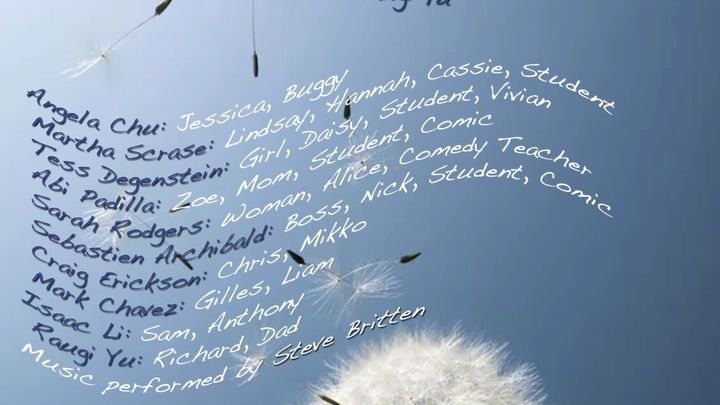 Angela Chu: Jessica, Buggy
Martha Scrase: Lindsay, Hannah, Cassie, Student
Tess Degenstein: Girl, Daisy, Student, Vivian
Abi Padilla: Zoe, Mom, Student, Comic
Sarah Rodgers: Woman, Alice, Comedy Teacher
Sebastien Archibald: Boss, Nick, Student, Comic
Craig Erickson: Chris, Mikko
Mark Chavez: Gilles, Liam
Isaac Li: Sam, Anthony
Raugi Yu: Richard, Dad
Music performed by Steve Britten